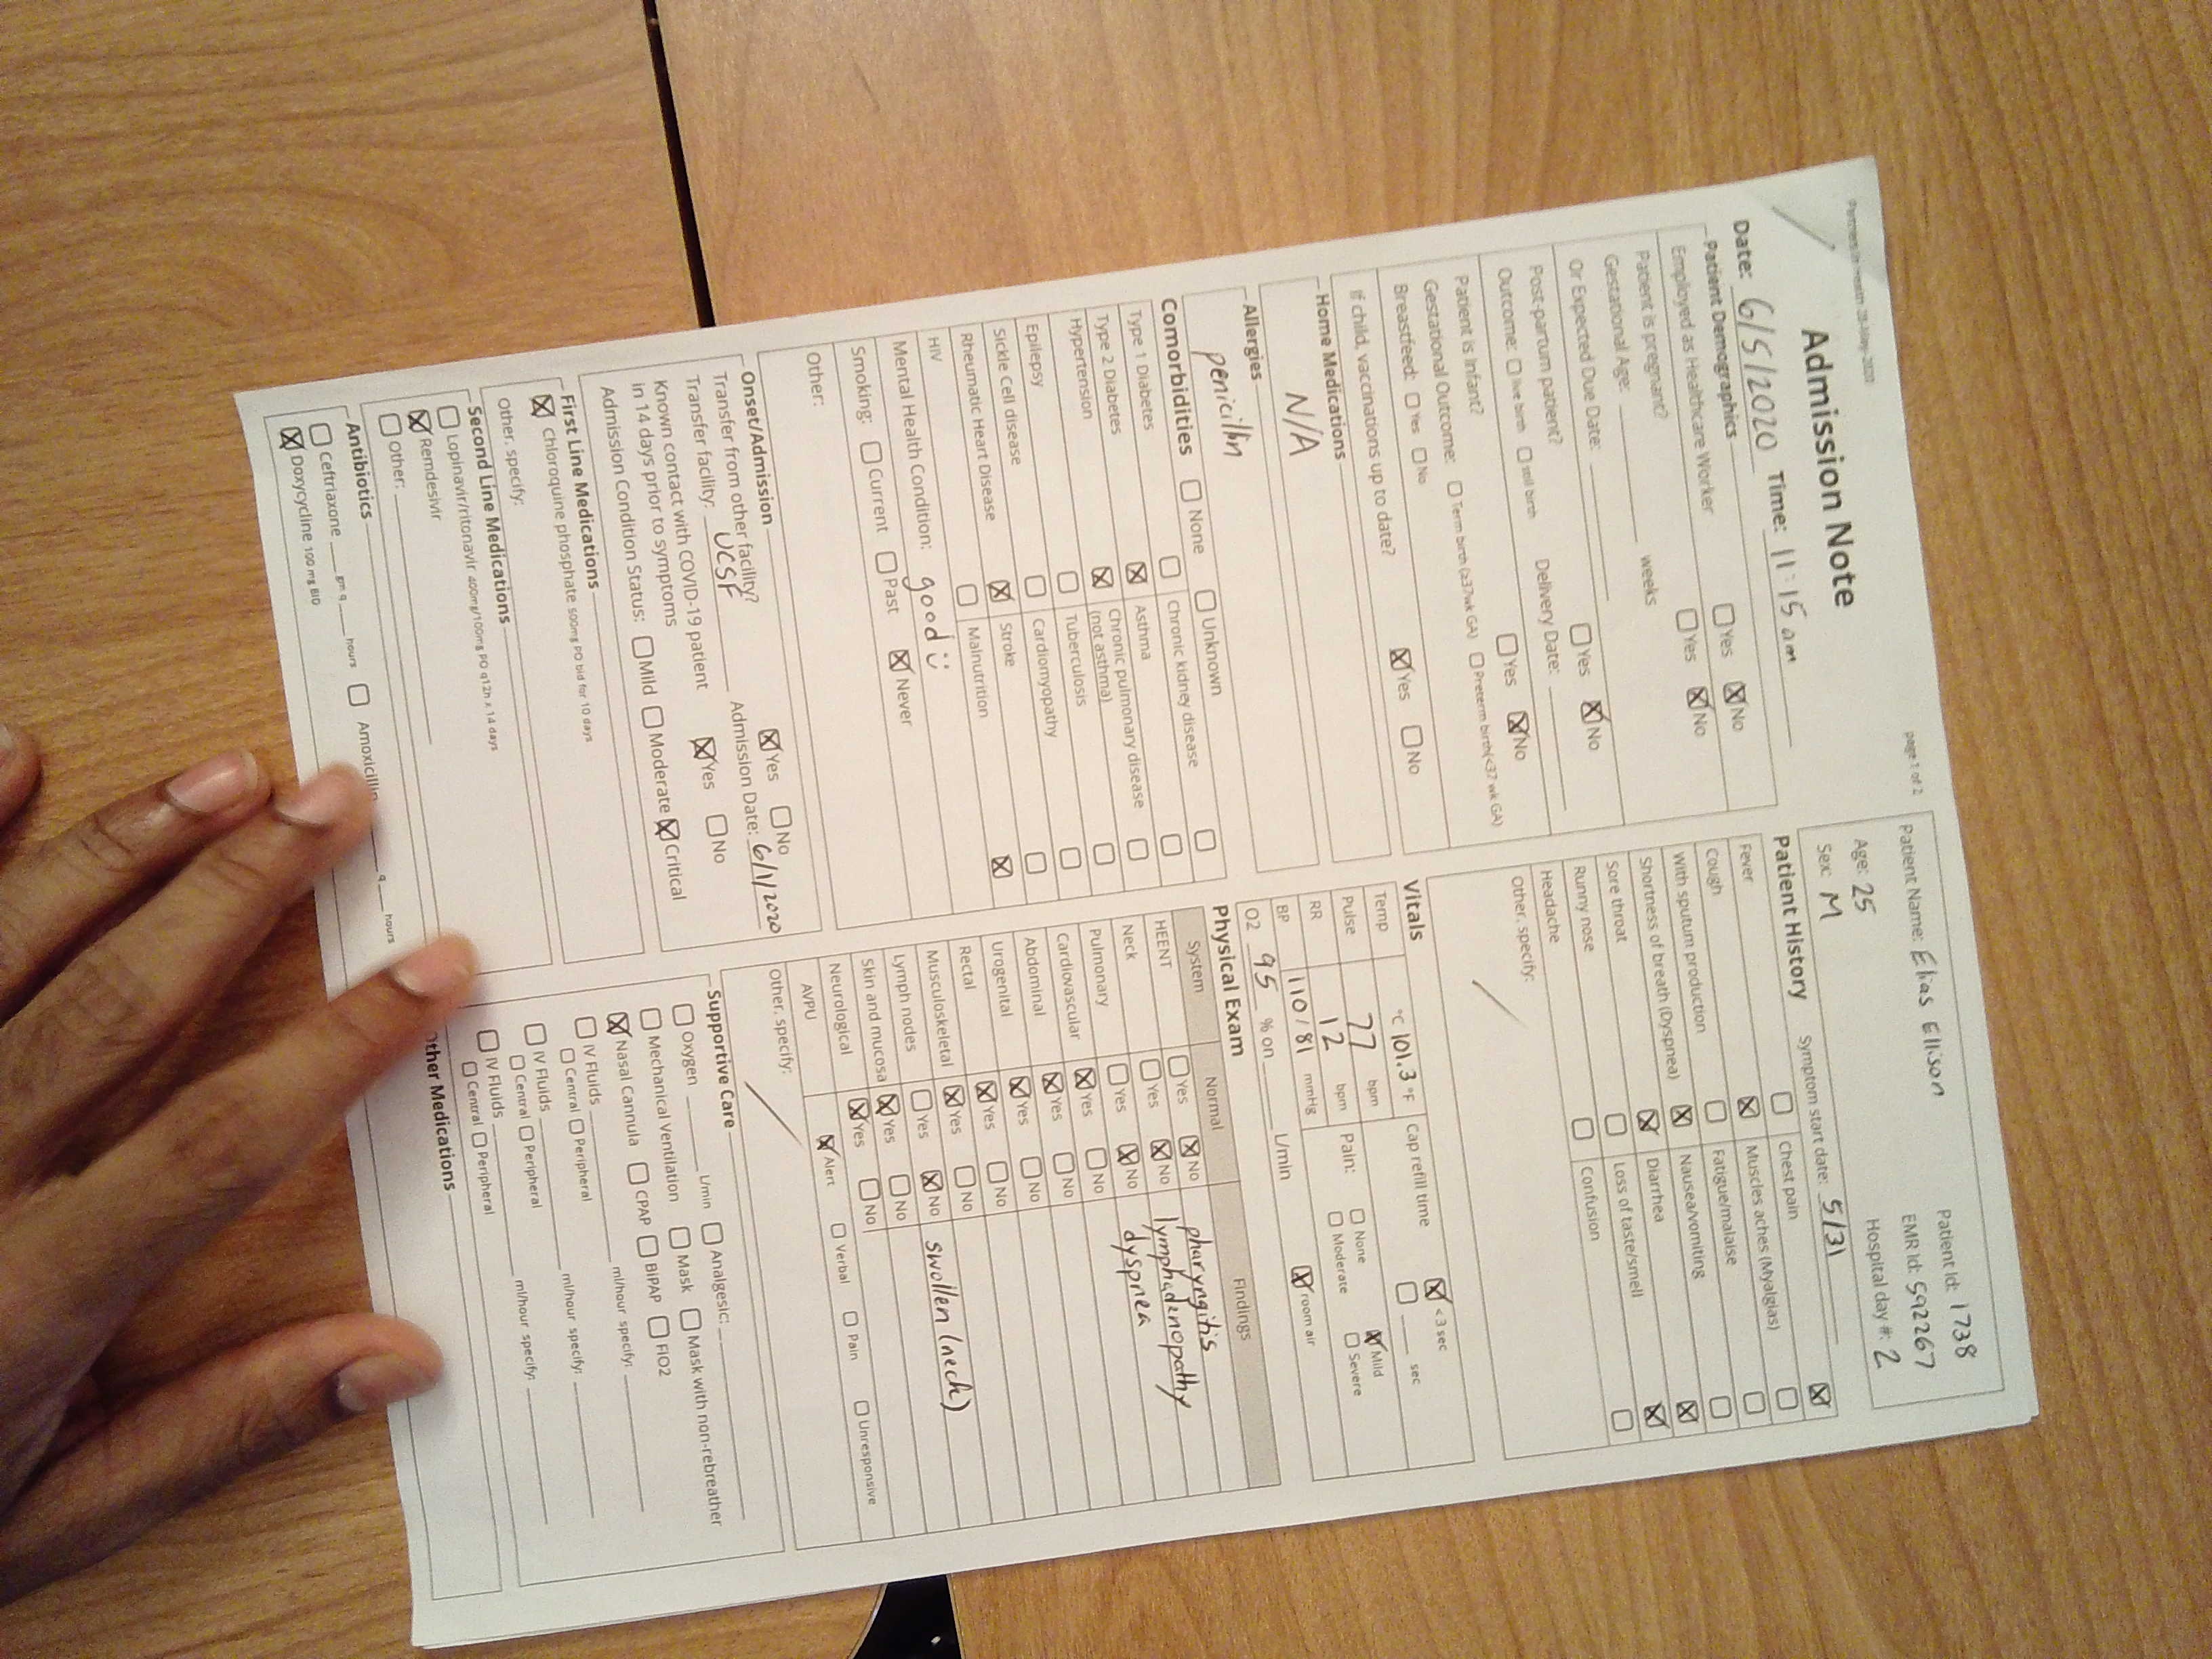 Partners In Health 28-May-2020
page 1 of 2
Admission Note
Patient Name: Elias Ellison
Patient Id: 1738
Age: 25
EMR Id: 592267
Sex: M
Hospital day #: 2
Date: 6/5/2020 Time: 11:15 am
Patient Demographics
Employed as Healthcare Worker ☐ Yes ☒ No
Patient is pregnant? ☐ Yes ☒ No
Gestational Age: ____ weeks
Or Expected Due Date: ____
Post-partum patient? ☐ Yes ☒ No
Outcome: ☐ live birth ☐ still birth Delivery Date: ____
Patient is Infant? ☐ Yes ☒ No
Gestational Outcome: ☐ Term birth (≥37wk GA) ☐ Preterm birth(<37 wk GA)
Breastfeed: ☐ Yes ☐ No
If child, vaccinations up to date? ☒ Yes ☐ No
Home Medications
N/A
Allergies
penicillin
Comorbidities ☐ None ☐ Unknown
Type 1 Diabetes ☐ Chronic kidney disease ☐
Type 2 Diabetes ☒ Asthma ☐
Hypertension ☒ Chronic pulmonary disease (not asthma) ☐
Epilepsy ☐ Tuberculosis ☐
Sickle Cell disease ☐ Cardiomyopathy ☐
Rheumatic Heart Disease ☒ Stroke ☒
HIV ☐ Malnutrition
Mental Health Condition: good :)
Smoking: ☐ Current ☐ Past ☒ Never
Other:
Onset/Admission
Transfer from other facility? ☒ Yes ☐ No
Transfer facility: UCSF Admission Date: 6/1/2020
Known contact with COVID-19 patient
in 14 days prior to symptoms ☒ Yes ☐ No
Admission Condition Status: ☐ Mild ☐ Moderate ☒ Critical
First Line Medications
☒ Chloroquine phosphate 500mg PO bid for 10 days
Other, specify:
Second Line Medications
☐ Lopinavir/ritonavir 400mg/100mg PO q12h x 14 days
☒ Remdesivir
☐ Other: ____
Antibiotics
☐ Ceftriaxone ____ gm q ____ hours ☐ Amoxicillin ____ q ____ hours
☒ Doxycycline 100 mg BID
Patient History Symptom start date: 5/31
Fever ☐ Chest pain ☒
Cough ☒ Muscles aches (Myalgias) ☐
With sputum production ☐ Fatigue/malaise ☐
Shortness of breath (Dyspnea) ☒ Nausea/vomiting ☐
Sore throat ☒ Diarrhea ☒
Runny nose ☐ Loss of taste/smell ☒
Headache ☐ Confusion ☐
Other, specify:
Vitals
Temp °C 101.3 °F Cap refill time ☒ < 3 sec ☐ ____ sec
Pulse 77 bpm
RR 12 bpm Pain: ☐ None ☒ Mild ☐ Moderate ☐ Severe
BP 110/81 mmHg
O2 95 % on ____ L/min ☒ room air
Physical Exam
System Normal Findings
HEENT ☐ Yes ☒ No pharyngitis
Neck ☐ Yes ☒ No lymphadenopathy
Pulmonary ☐ Yes ☒ No dyspnea
Cardiovascular ☒ Yes ☐ No
Abdominal ☒ Yes ☐ No
Urogenital ☒ Yes ☐ No
Rectal ☒ Yes ☐ No
Musculoskeletal ☒ Yes ☐ No
Lymph nodes ☐ Yes ☒ No swollen (neck)
Skin and mucosa ☒ Yes ☐ No
Neurological ☒ Yes ☐ No
AVPU ☒ Alert ☐ Verbal ☐ Pain ☐ Unresponsive
Other, specify:
Supportive Care
☐ Oxygen ____ L/min ☐ Analgesic: ____
☐ Mechanical Ventilation ☐ Mask ☐ Mask with non-rebreather
☒ Nasal Cannula ☐ CPAP ☐ BiPAP ☐ FIO2
☐ IV Fluids ____ ml/hour specify: ____
☐ Central ☐ Peripheral
☐ IV Fluids ____ ml/hour specify: ____
☐ Central ☐ Peripheral
☐ IV Fluids ____ ml/hour specify: ____
☐ Central ☐ Peripheral
Other Medications